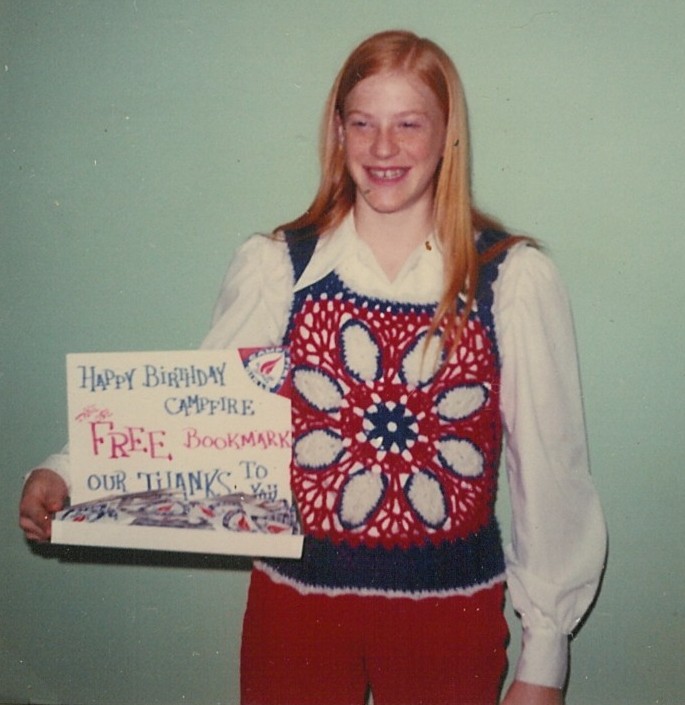 HAPPY BIRTHDAY
CAMPFIRE
FREE BOOKMARK
OUR THANKS TO
YOU